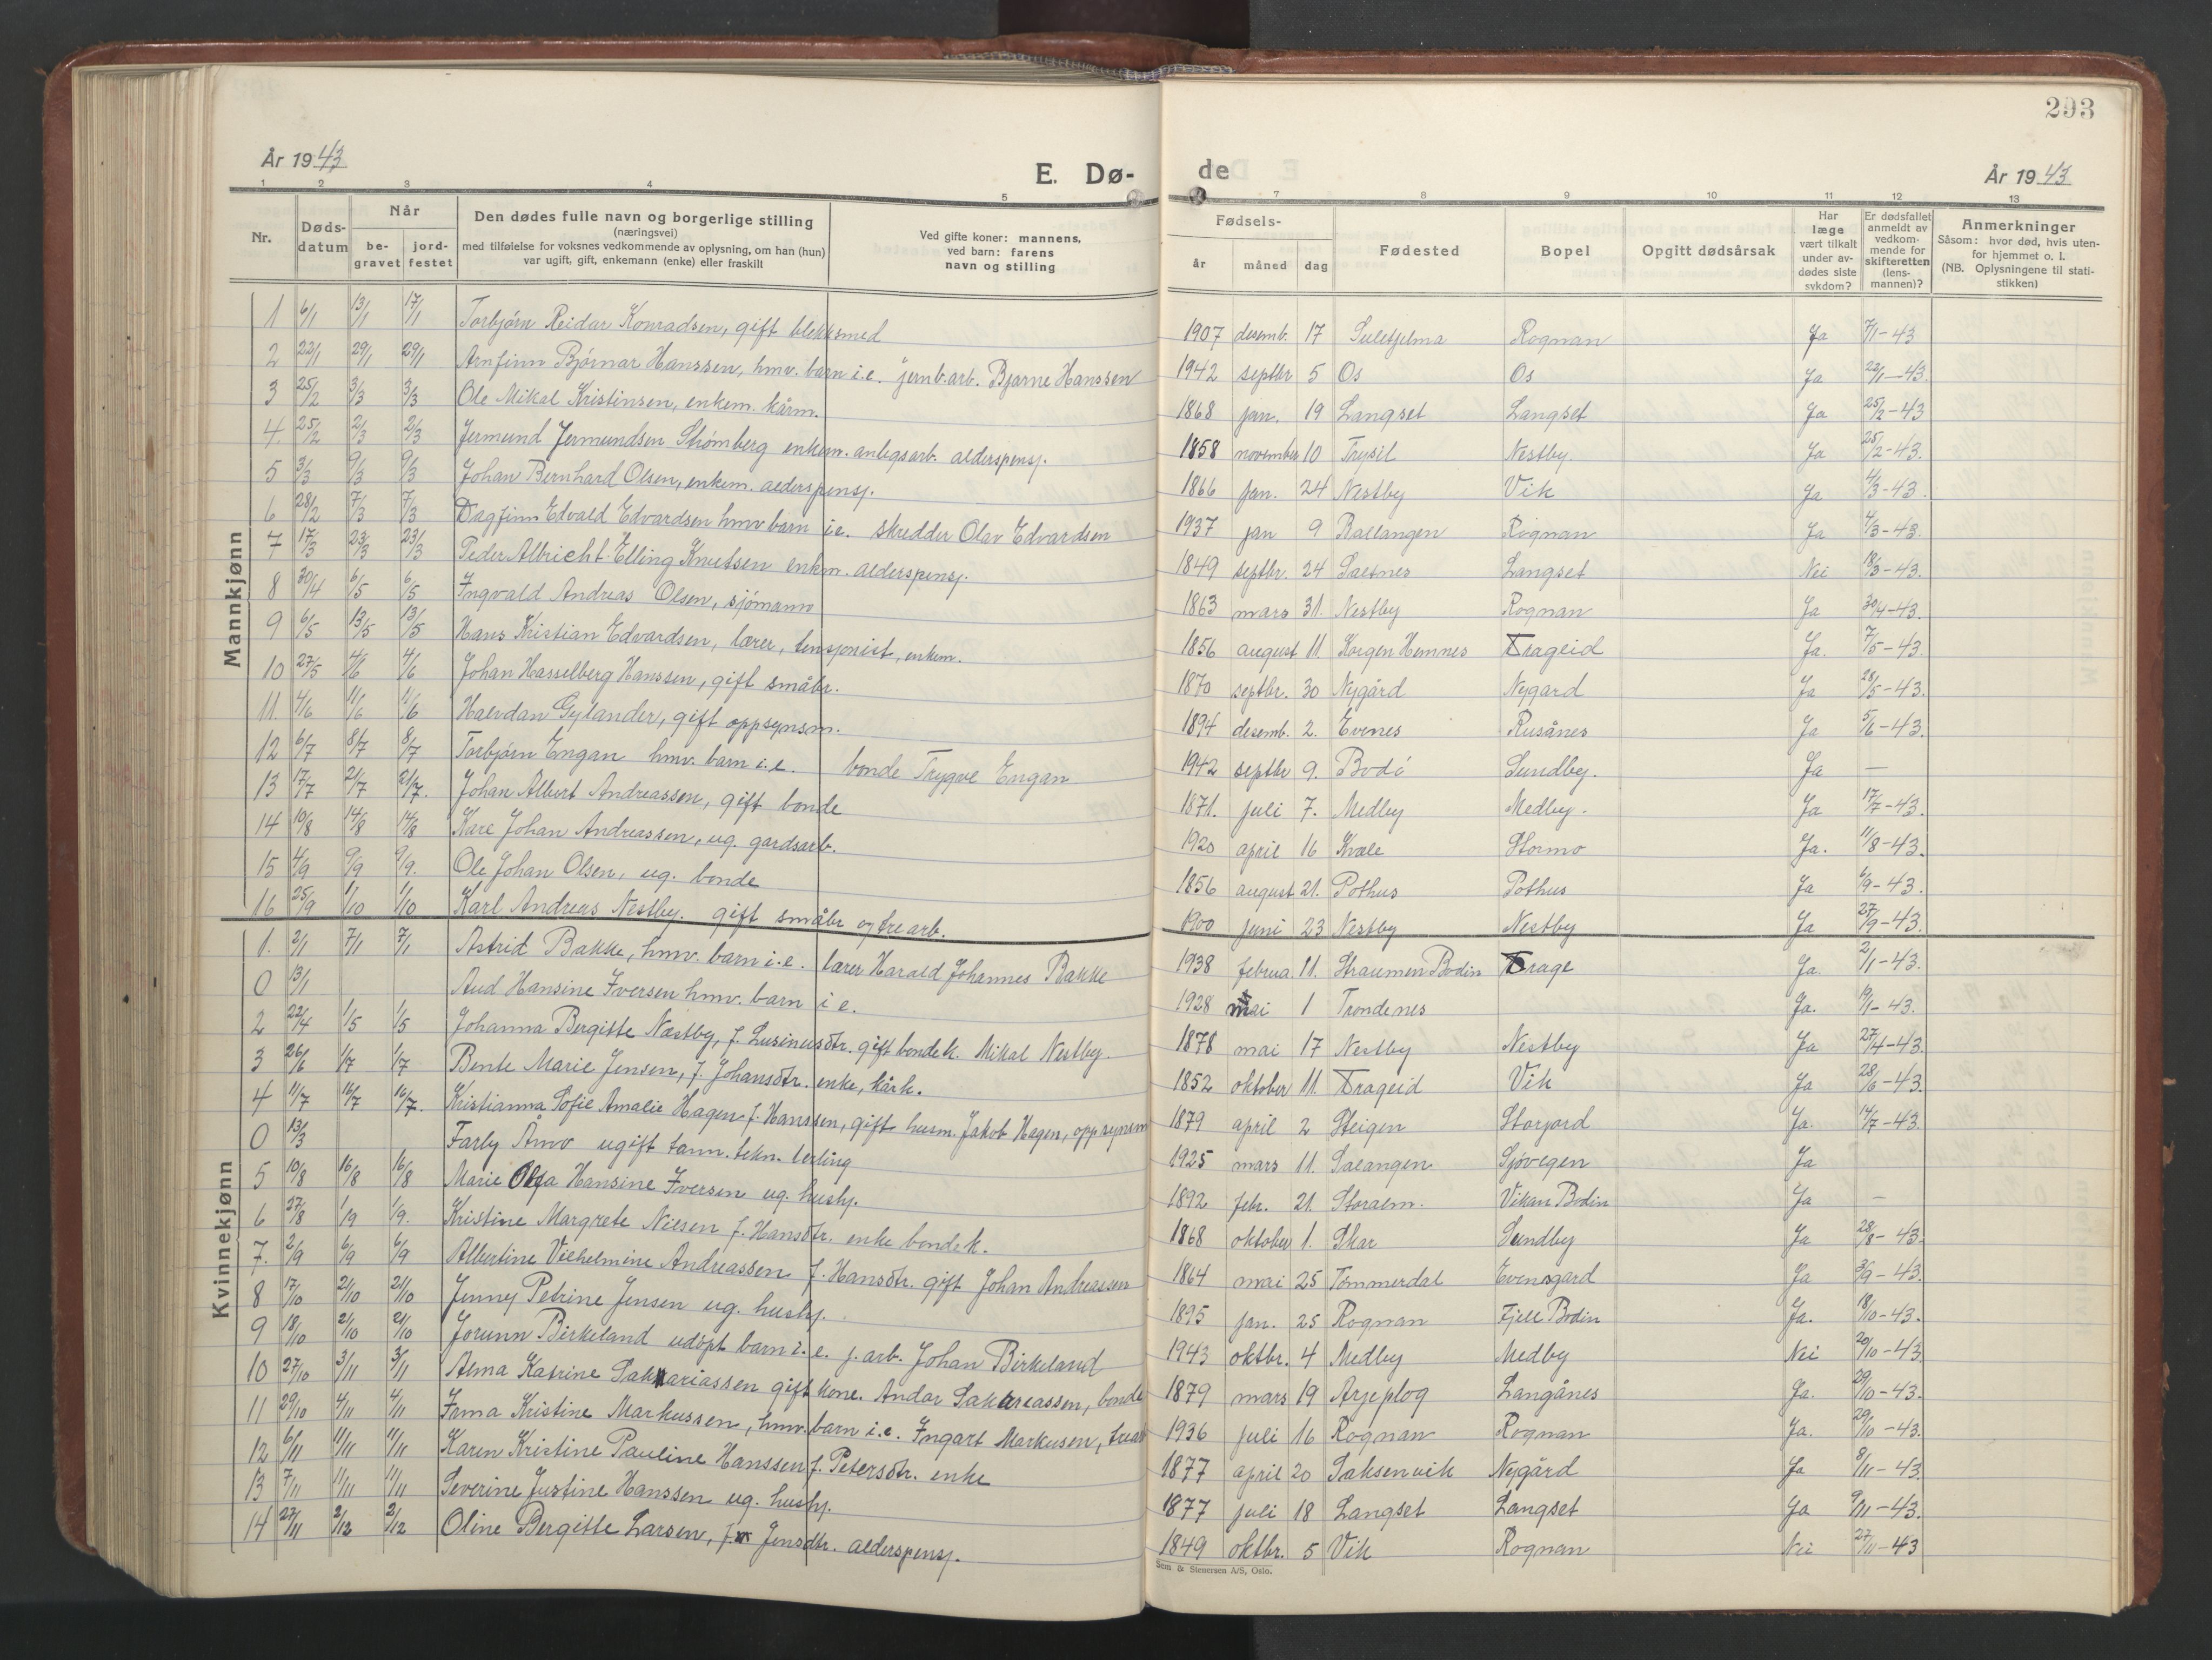 293
År 1943
E. Dø-
de
År 1943
1 2 3 4 5 7 8 9 10 11 12 13
Nr.
Døds-
datum
Når
be-
gravet
jord-
festet
Den dødes fulle navn og borgerlige stilling
(næringsvei)
med tilføielse for voksnes vedkommende av oplysning, om han (hun)
var ugift, gift, enkemann (enke) eller fraskilt
Ved gifte koner: mannens,
ved barn: farens
navn og stilling
Fødsels-
år måned dag
Fødested
Bopel
Opgitt dødsårsak
Har
læge
vært tilkalt
under av-
dødes siste
sykdom?
Er dødsfallet
anmeldt av
vedkom-
mende for
skifteretten
(lens-
mannen)?
Anmerkninger
Såsom: hvor død, hvis uten-
for hjemmet o. l.
(NB. Oplysningene til stati-
stikken)
Mannkjønn
1 6/1 13/1 17/1 Torbjørn Reidar Konradsen, gift blekksmed 1907 desemb. 17 Sulitjelma Rognan Ja 7/1-43
2 22/1 29/1 29/1 Arnfinn Bjørnar Hanssen, hmv. barn i.e. jernb.arb. Bjarne Hanssen 1942 septbr 5 Os Os Ja 22/1-43.
3 25/2 3/3 3/3 Ole Mikal Kristinsen, enkem. kårm. 1868 jan. 19 Langset Langset Ja 25/2-43
4. 25/2 2/3 2/3 Jermund Jermundsen Strømberg enkem. anlegsarb. alderspensj. 1858 november 10 Trysil Nestby. Ja 25/2-43.
5 3/3 9/3 9/3 Johan Bernhard Olsen, enkem. alderspensj. 1866 jan. 24 Nestby Vik Ja 4/3-43.
6 28/2 7/3 7/3 Dagfinn Edvald Edvardsen hmv barn i.e. skredder Olav Edvardsen 1937 jan 9 Ballangen Rognan Ja 4/3-43.
7 17/3 23/3 23/3 Peder Albricht Elling Knutsen enkm. alderspensj. 1849 septbr. 24 Saltnes Langset Nei 18/3-43.
8 30/4 6/5 6/5 Ingvald Andreas Olsen, sjømann 1863 mars 31. Nestby Rognan Ja 30/4-43.
9 6/5 13/5 13/5 Hans Kristian Edvardsen, lærer, pensjonist, enkem. 1856 august 11. Korgen Hemnes Drageid Ja. 7/5-43.
10 27/5 4/6 4/6 Johan Hasselberg Hanssen, gift småbr. 1870 septbr. 30 Nygård Nygard Ja 28/5-43.
11. 4/6 11/6 11/6 Halvdan Gylander, gift oppsynsm. 1894 desemb. 2. Evenes Rusånes Ja 5/6-43.
12 6/7 8/7 8/7 Torbjørn Engan hmv. barn i.e. bonde Trygve Engan 1942 septbr 9. Bodø Sundby. Ja —
13 17/7 21/7 21/7. Johan Albert Andreassen, gift bonde 1871. juli 7. Medby Medby. Ja 17/7-43.
14 10/8 14/8 14/8 Kåre Johan Andreassen, ug. gardsarb. 1920 april 16 Kvæle Stormo Ja. 11/8-43.
15 4/9 9/9 9/9. Ole Johan Olsen, ug. bonde 1856 august 21. Pothus Pothus Ja 6/9-43.
16 25/9 1/10 1/10 Karl Andreas Nestby. gift småbr og trearb. 1900 juni 23 Nestby Nestby Ja 27/9-43.
Kvinnekjønn
1. 2/1 7/1 7/1 Astrid Bakke, hmv. barn i.e. lærer Harald Johannes Bakke 1938 februa 11. Straumen Bodin Drage Ja. 2/1-43.
0 13/1 Aud Hansine Iversen hmv. barn i e. 1928 mai 1 Trondenes Ja. -43.
2 22/4 1/5 1/5 Johanna Bergitte Næstby, f. Lusinusdtr. gift bondek. Mikal Nestby. 1878 mai 17 Nestby Nestby Ja 27/4-43.
3 26/6 1/7 1/7 Bente Marie Jensen, f. Johansdtr. enke, kårk. 1852 oktober 11. Drageid Vik Ja 28/6-43.
4 11/7 16/7 16/7. Kristianna Sofie Amalie Hagen f. Hanssen, gift husm. Jakob Hagen, oppsynsm 1879 april 2 Steigen Storjord Ja. 14/7-43.
0 13/3 Farly Åmo ugift tann. tekn. lerling 1925 mars 11. Salangen Sjøvegen Ja
5 10/8 16/8 16/8 Marie Olga Hansine Iversen ug. hushj. 1892 febr. 21. Storalm. Vikan Bodin Ja —
6 27/8 1/9 1/9. Kristine Margrete Nilsen f. Hansdtr. enke bondek. 1868 oktober 1. Skar Sundby Ja 28/8-43.
7. 2/9 6/9 6/9 Albertine Vilhelmine Andreassen f. Hansdtr. gift Johan Andreassen 1864 mai 25 Tømmerdal Evensgard Ja 3/9-43.
8 17/10 21/10 21/10 Jenny Petrine Jensen ug. hushj. 1895 jan. 25 Rognan Fjell Bodin Ja. 18/10-43.
9 18/10 21/10 21/10 Jorunn Birkeland udøpt barn i.e. j.arb. Johan Birkeland 1943 oktbr. 4 Medby Medby Nei 20/10-43.
10 27/10 3/11 3/11 Alma Katrine Sakariassen gift kone. Andor Sakareassen, bonde 1879 mars 19 Arjeplog Langånes Ja. 29/10-43.
11 29/10 4/11 4/11 Irma Kristine Markussen, hmv. barn i.e. Ingart Markusen, 1936 juli 16 Rognan Rognan Ja. 29/10-43.
12 6/11 11/11 11/11 Karen Kristine Pauline Hanssen f. Petersdtr. enke 1877 april 20 Saksenvik Nygård Ja 8/11-43.
13 7/11 11/11 11/11 Severine Justine Hanssen ug. hushj. 1877 juli 18 Langset Langset Ja 9/11-43.
14 27/11 2/12 2/12 Oline Bergitte Larsen, f. Jensdtr. alderspensj. 1849 oktbr. 5 Vik Rognan Nei 27/11-43
Sem & Stenersen A/S, Oslo.